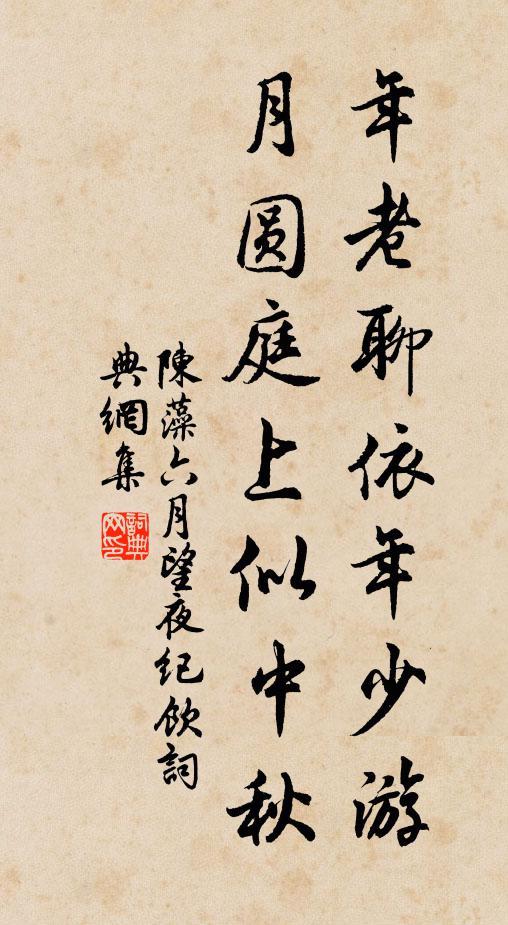 年老聊依年少游
月圆庭上似中秋
陳藻六月望夜纪飲詞
典網集
詞典网印